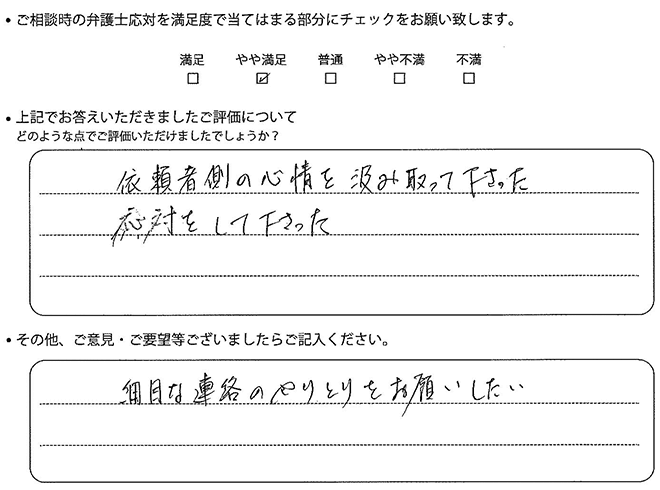 ・ご相談時の弁護士応対を満足度で当てはまる部分にチェックをお願い致します。
満足 やや満足 普通 やや不満 不満
□ ☑ □ □ □
・上記でお答えいただきましたご評価について
どのような点でご評価いただけましたでしょうか?
依頼者側の心情を汲み取って下さった
応対をして下さった
・その他、ご意見・ご要望等ございましたらご記入ください。
細目な連絡のやりとりをお願いしたい